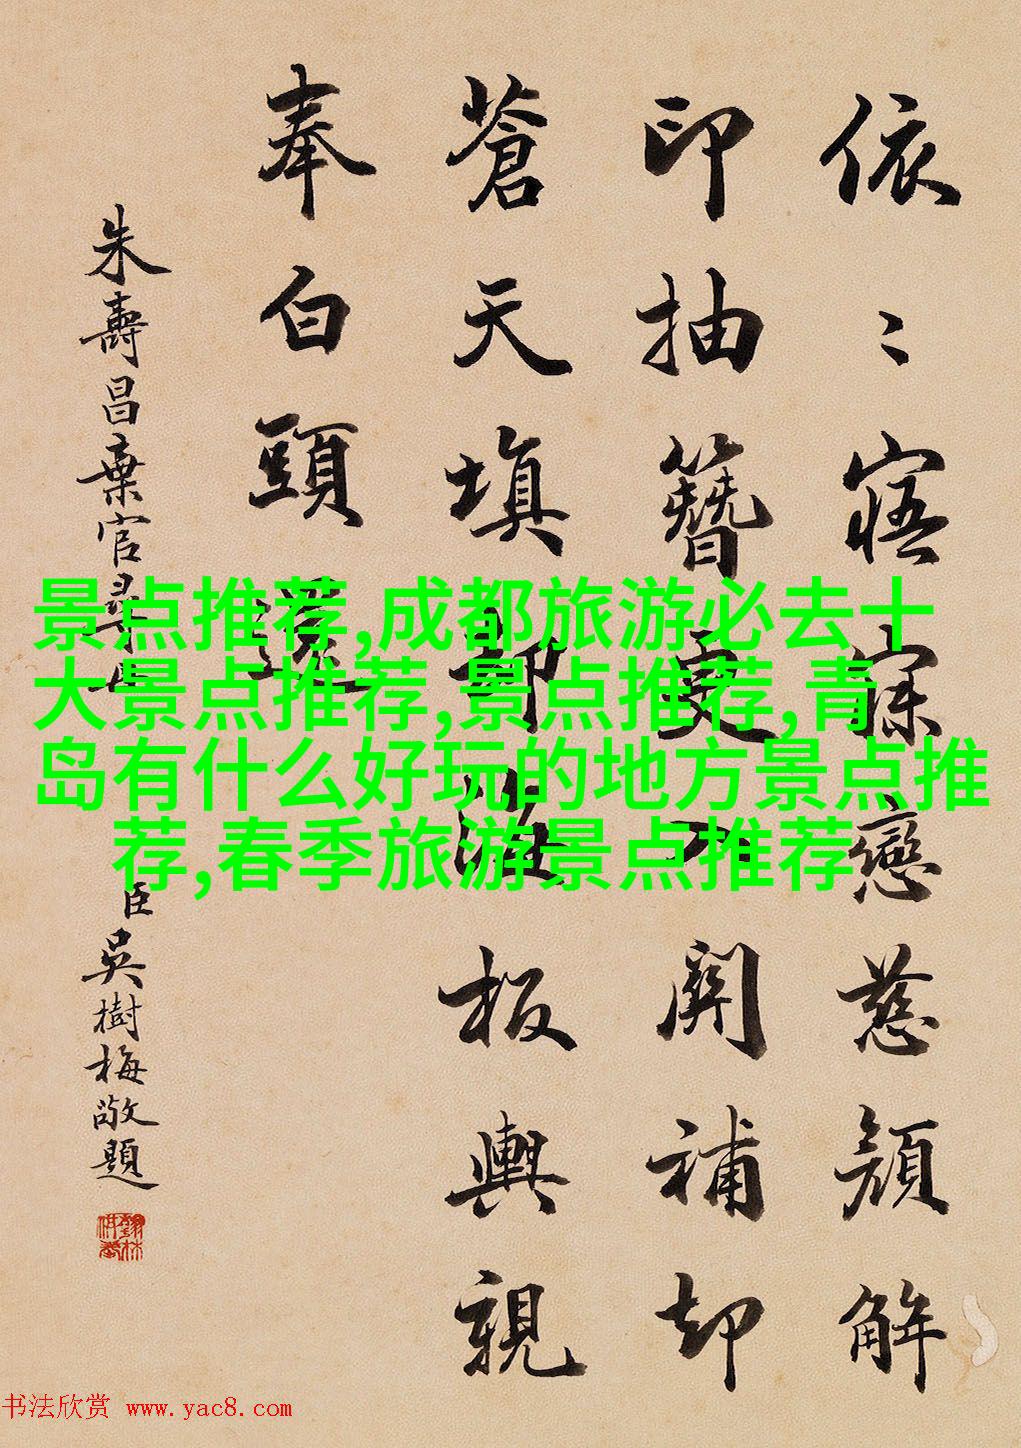 依〻寤寐戀慈顏解
印抽簪更入關補却
蒼天填部海板輿親
奉白頭還
朱壽昌棄官尋母
臣吳樹梅敬題
景点推荐,成都旅游必去十
大景点推荐,景点推荐,青
岛有什么好玩的地方景点推
荐,春季旅游景点推荐
书法欣赏 www.yac8.com